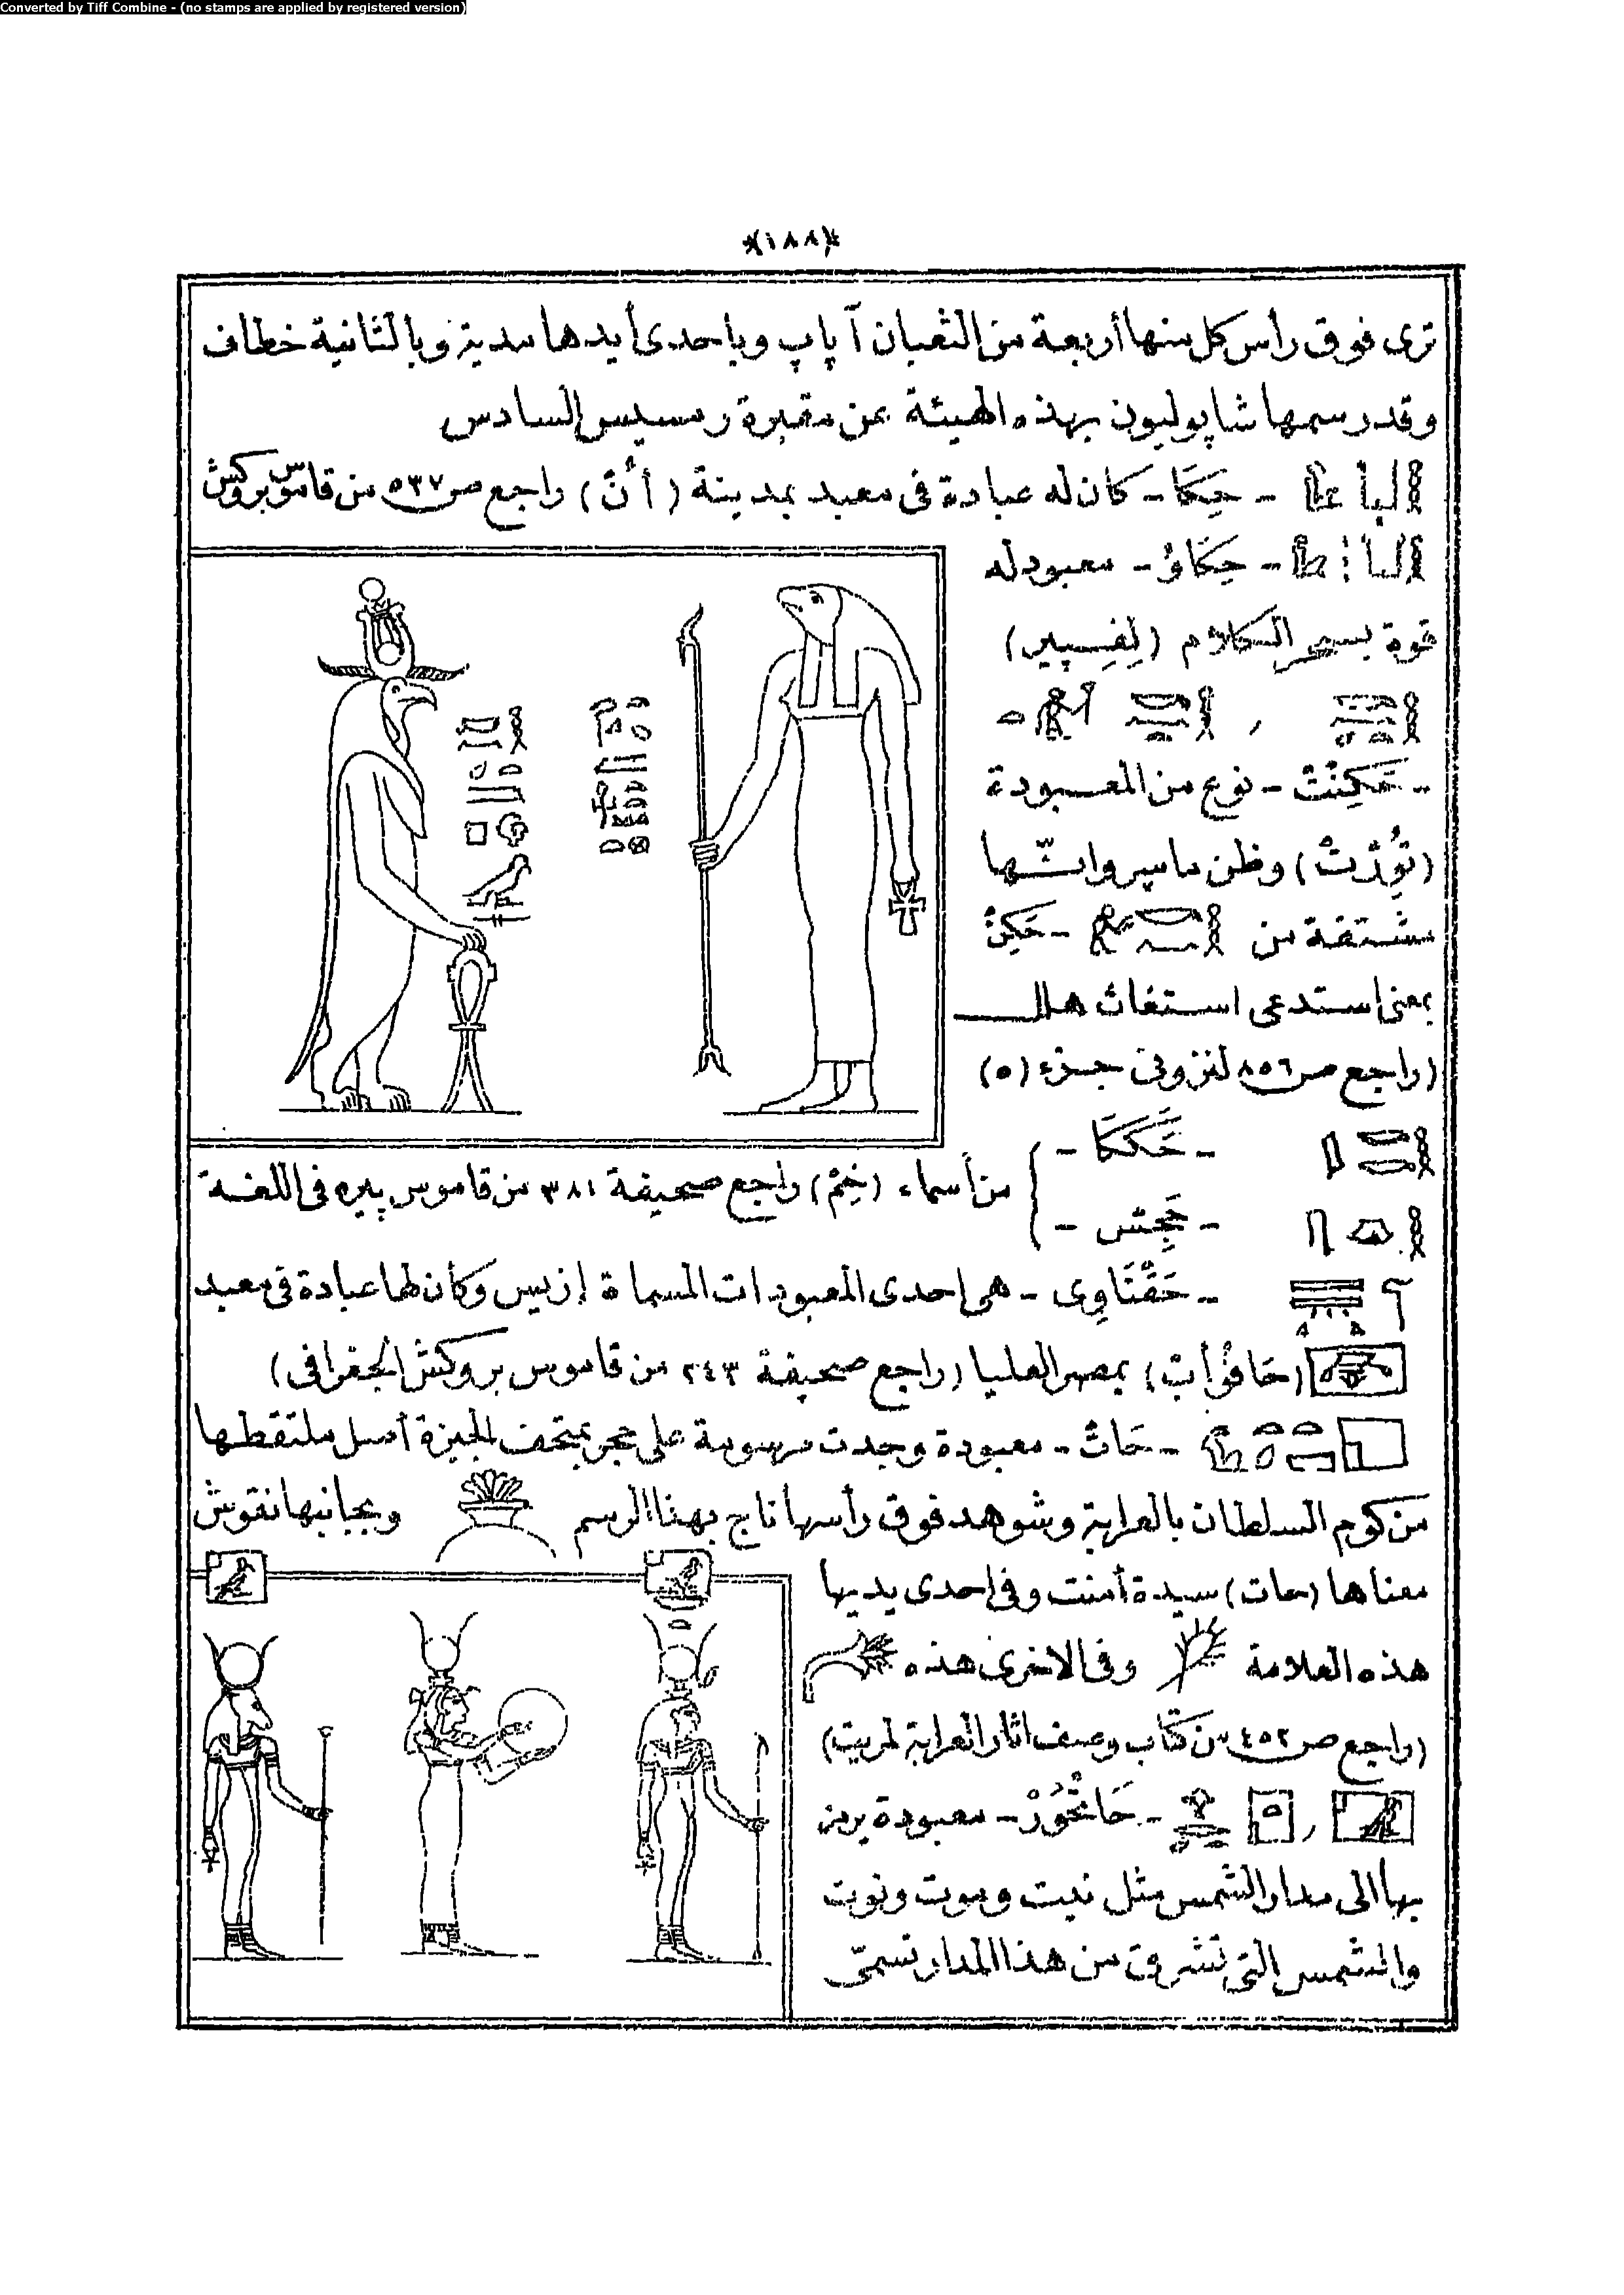 Converted by Tiff Combine - (no stamps are applied by registered version)
*(١٨٨)*
ترى فوق رأس كل منها أربعة من الثعبان آپاپ وباحدى أيدها مدية وبالثانية خطاف
وقد رسمها شاپوليون بهذه الهيئة عن مقبرة رمسيس السادس
- حِكَا - كان له عبادة فى معبد بمدينة (أنْ) راجع ص ٥٣٧ من قاموس بروكش
- حِكَاوُ - معبود له
قوة بسحر الكلام (لِفِسِپير)
,
- حَكِنْتْ - نوع من المعبودة
(تُوِرْتْ) وظن ماسپرو انّها
مشتقة من - حَكِنْ
بمعنى استدعى استغاث هلل
(راجع ص ٨٥٦ لنزونى جزء (٥)
- حَكَكَا -
من أسماء (خِمْ) راجع صحيفة ٣٨١ من قاموس پيره فى اللغة
- حَجِسْ -
- حَقْتَاوِى - هى احدى المعبودات المسماة إزيس وكان لها عبادة فى معبد
(حَافُوأبْ) بمصر العليا (راجع صحيفة ٢٤٣ من قاموس بروكش الجغرافى)
- حَاتْ - معبودة وجدت مرسومة على حجر بمتحف الجيزة أصل ملتقطها
من كوم السلطان بالعرابة وشوهد فوق رأسها تاج بهذا الرسم وبجانبها نقوش
معناها (حات) سيدة أمنت وفى احدى يديها
هذه العلامة وفى الاخرى هذه
(راجع ص ٤٥٢ من كتاب وصف اثار العرابة لمريت)
, - حَاتْحُورْ - معبودة يرمز
بها الى مدار الشمس مثل نيت وموت ونوت
والشمس التى تشرق من هذا المدار تسمّى